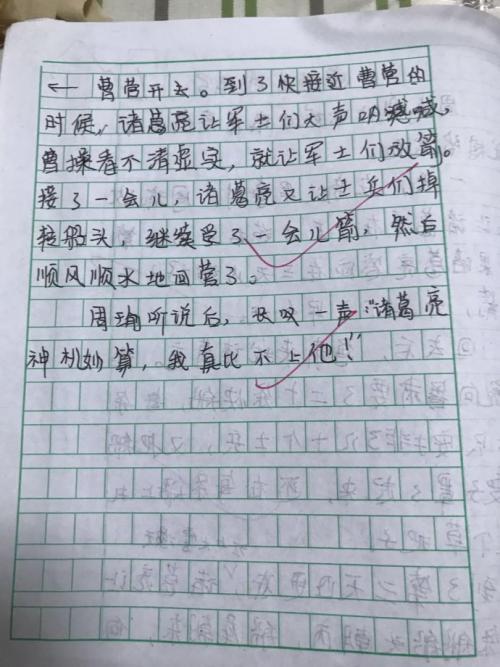 ← 曹营开去。到了快接近曹营的
时候，诸葛亮让军士们大声呐喊，
曹操看不清虚实，就让军士们放箭。
接了一会儿，诸葛亮又让士兵们掉
转船头，继续受了一会儿箭，然后
顺风顺水地回营了。
周瑜听说后，长叹一声：“诸葛亮
神机妙算，我真比不上他！”